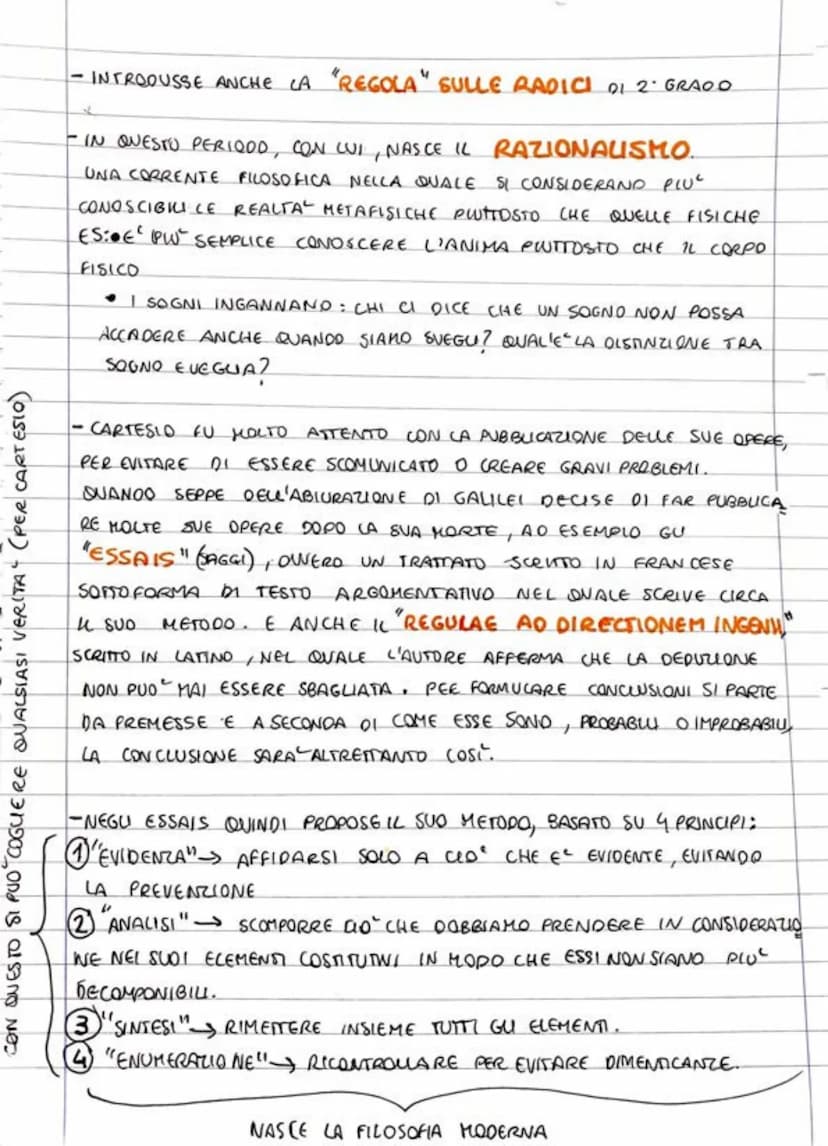 - INTRODUSSE ANCHE LA "REGOLA" SULLE RADICI DI 2° GRADO
- IN QUESTO PERIODO, CON LUI, NASCE IL RAZIONALISMO.
UNA CORRENTE FILOSOFICA NELLA QUALE SI CONSIDERANO PIU'
CONOSCIBILI LE REALTA' METAFISICHE PIUTTOSTO CHE QUELLE FISICHE
ES: E' PIU' SEMPLICE CONOSCERE L'ANIMA PIUTTOSTO CHE IL CORPO
FISICO
• I SOGNI INGANNANO: CHI CI DICE CHE UN SOGNO NON POSSA
ACCADERE ANCHE QUANDO SIAMO SVEGLI? QUAL'E' LA DISTINZIONE TRA
SOGNO E VEGLIA?
- CARTESIO FU MOLTO ATTENTO CON LA PUBBLICAZIONE DELLE SUE OPERE,
PER EVITARE DI ESSERE SCOMUNICATO O CREARE GRAVI PROBLEMI.
QUANDO SEPPE DELL'ABIURAZIONE DI GALILEI DECISE DI FAR PUBBLICA
RE MOLTE SUE OPERE DOPO LA SUA MORTE, AD ESEMPIO GLI
"ESSAIS" (SAGGI), OVVERO UN TRATTATO SCRITTO IN FRANCESE
SOTTOFORMA DI TESTO ARGOMENTATIVO NEL QUALE SCRIVE CIRCA
IL SUO METODO. E ANCHE IL "REGULAE AD DIRECTIONEM INGENII"
SCRITTO IN LATINO, NEL QUALE L'AUTORE AFFERMA CHE LA DEDUZIONE
NON PUO' MAI ESSERE SBAGLIATA. PER FORMULARE CONCLUSIONI SI PARTE
DA PREMESSE E A SECONDA DI COME ESSE SONO, PROBABILI O IMPROBABILI,
LA CONCLUSIONE SARA' ALTRETTANTO COSI'.
- NEGLI ESSAIS QUINDI PROPOSE IL SUO METODO, BASATO SU 4 PRINCIPI:
1 "EVIDENZA" → AFFIDARSI SOLO A CIO' CHE E' EVIDENTE, EVITANDO
LA PREVENZIONE
2 "ANALISI" → SCOMPORRE CIO' CHE DOBBIAMO PRENDERE IN CONSIDERAZIO
NE NEI SUOI ELEMENTI COSTITUTIVI IN MODO CHE ESSI NON SIANO PIU'
DECOMPONIBILI.
3 "SINTESI" → RIMETTERE INSIEME TUTTI GLI ELEMENTI.
4 "ENUMERAZIONE" → RICONTROLLARE PER EVITARE DIMENTICANZE.
CON QUESTO SI PUO' COGLIERE QUALSIASI VERITA' (PER CARTESIO)
NASCE LA FILOSOFIA MODERNA